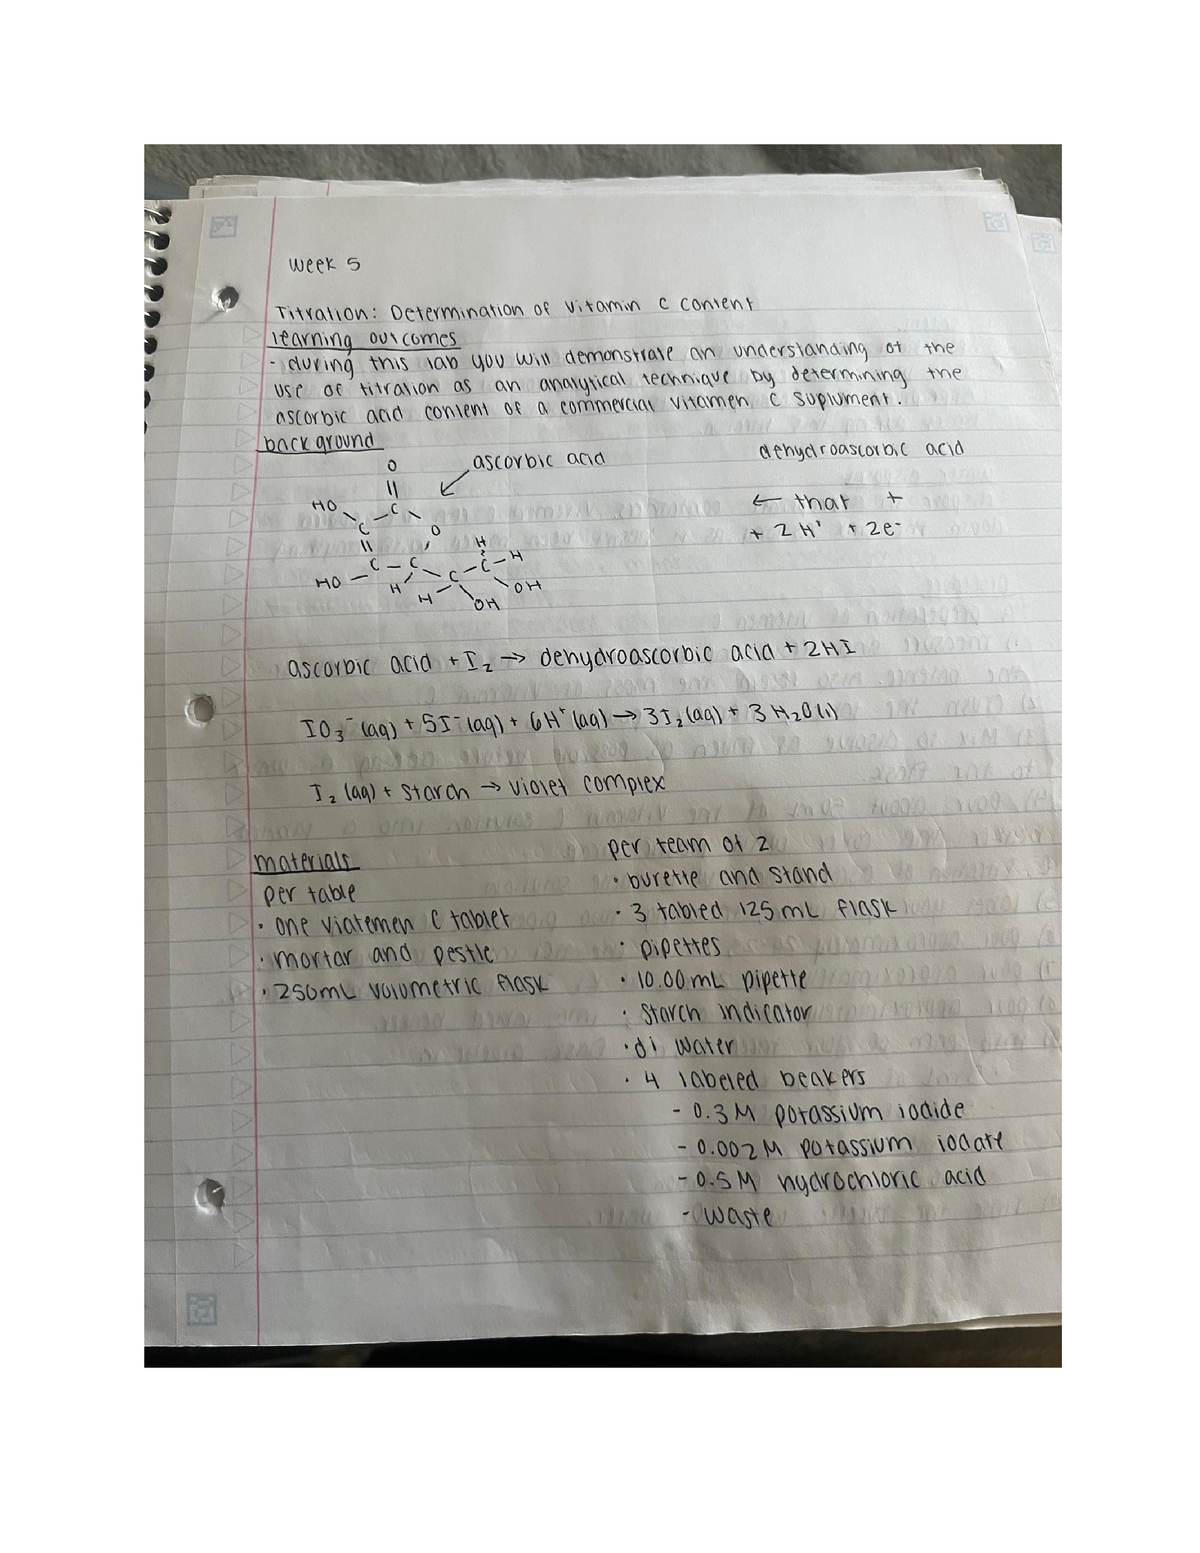 Week 5
Titration: Determination of Vitamin C Content
learning outcomes
- during this lab you will demonstrate an understanding of the
use of titration as an analytical technique by determining the
ascorbic acid content of a commercial vitamen C suplument.
background
ascorbic acid
dehydroascorbic acid
O
HO C
C O
C - C C - C - H
HO H H H
OH OH
← that +
+ 2H⁺ + 2e⁻
ascorbic acid + I₂ → dehydroascorbic acid + 2HI
IO₃⁻ (aq) + 5I⁻ (aq) + 6H⁺ (aq) → 3I₂ (aq) + 3H₂O (l)
I₂ (aq) + starch → violet complex
materials
per table
· one viatemen C tablet
· mortar and pestle
· 250mL volumetric flask
per team of 2
· burette and stand
· 3 tabled 125 mL flask
· pipettes
· 10.00 mL pipette
· starch indicator
· di water
· 4 labeled beakers
- 0.3 M potassium iodide
- 0.002 M potassium iodate
- 0.5 M hydrochloric acid
- waste